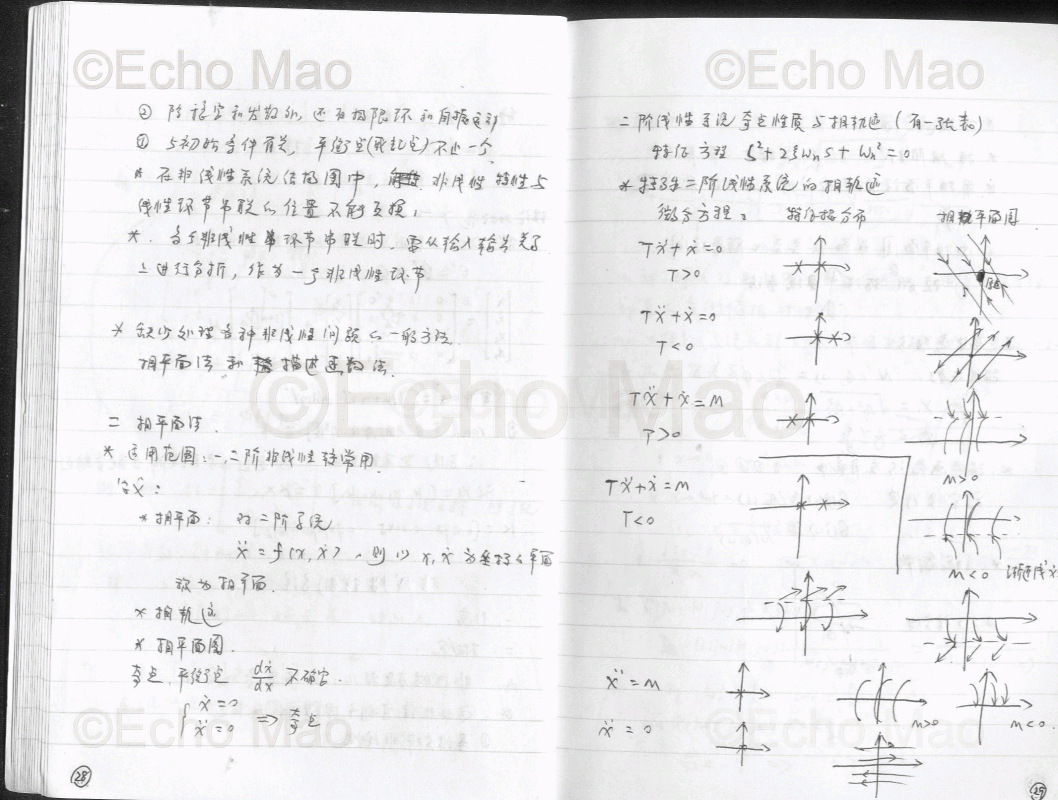 ©Echo Mao
©Echo Mao
② 除稳定和发散外,还有极限环和自持振荡
③ 与初始条件有关,平衡点(严格说)不止一个
* 在非线性系统结构图中,非线性特性与
线性环节串联的位置不能互换;
* 多个非线性环节串联时,需从输入输出关系
上进行分析,作为一个非线性环节
* 缺少处理各种非线性问题的一般方法.
相平面法和描述函数法.
©Echo Mao
二 相平面法.
* 适用范围:一、二阶非线性较常用
* 相平面: 对二阶系统
ẍ = f(x, ẋ), 则以 x, ẋ 为坐标的平面
称为相平面.
* 相轨迹
* 相平面图.
奇点,平衡点 dẋ/dx 不确定.
{ ẋ=0
ẍ=0 => 奇点
©Echo Mao
28
二阶线性系统奇点性质与相轨迹(有一张表)
特征方程 S²+2ξωₙS+ωₙ²=0
* 特殊二阶线性系统的相轨迹
微分方程: 特征根分布 相平面图
Tẍ+ẋ=0
T>0
Tẍ+ẋ=0
T<0
Tẍ+ẋ=M
T>0
M>0
Tẍ+ẋ=M
T<0
M<0 渐近线ẋ
ẍ=M
M>0 M<0
ẍ=0
©Echo Mao
29